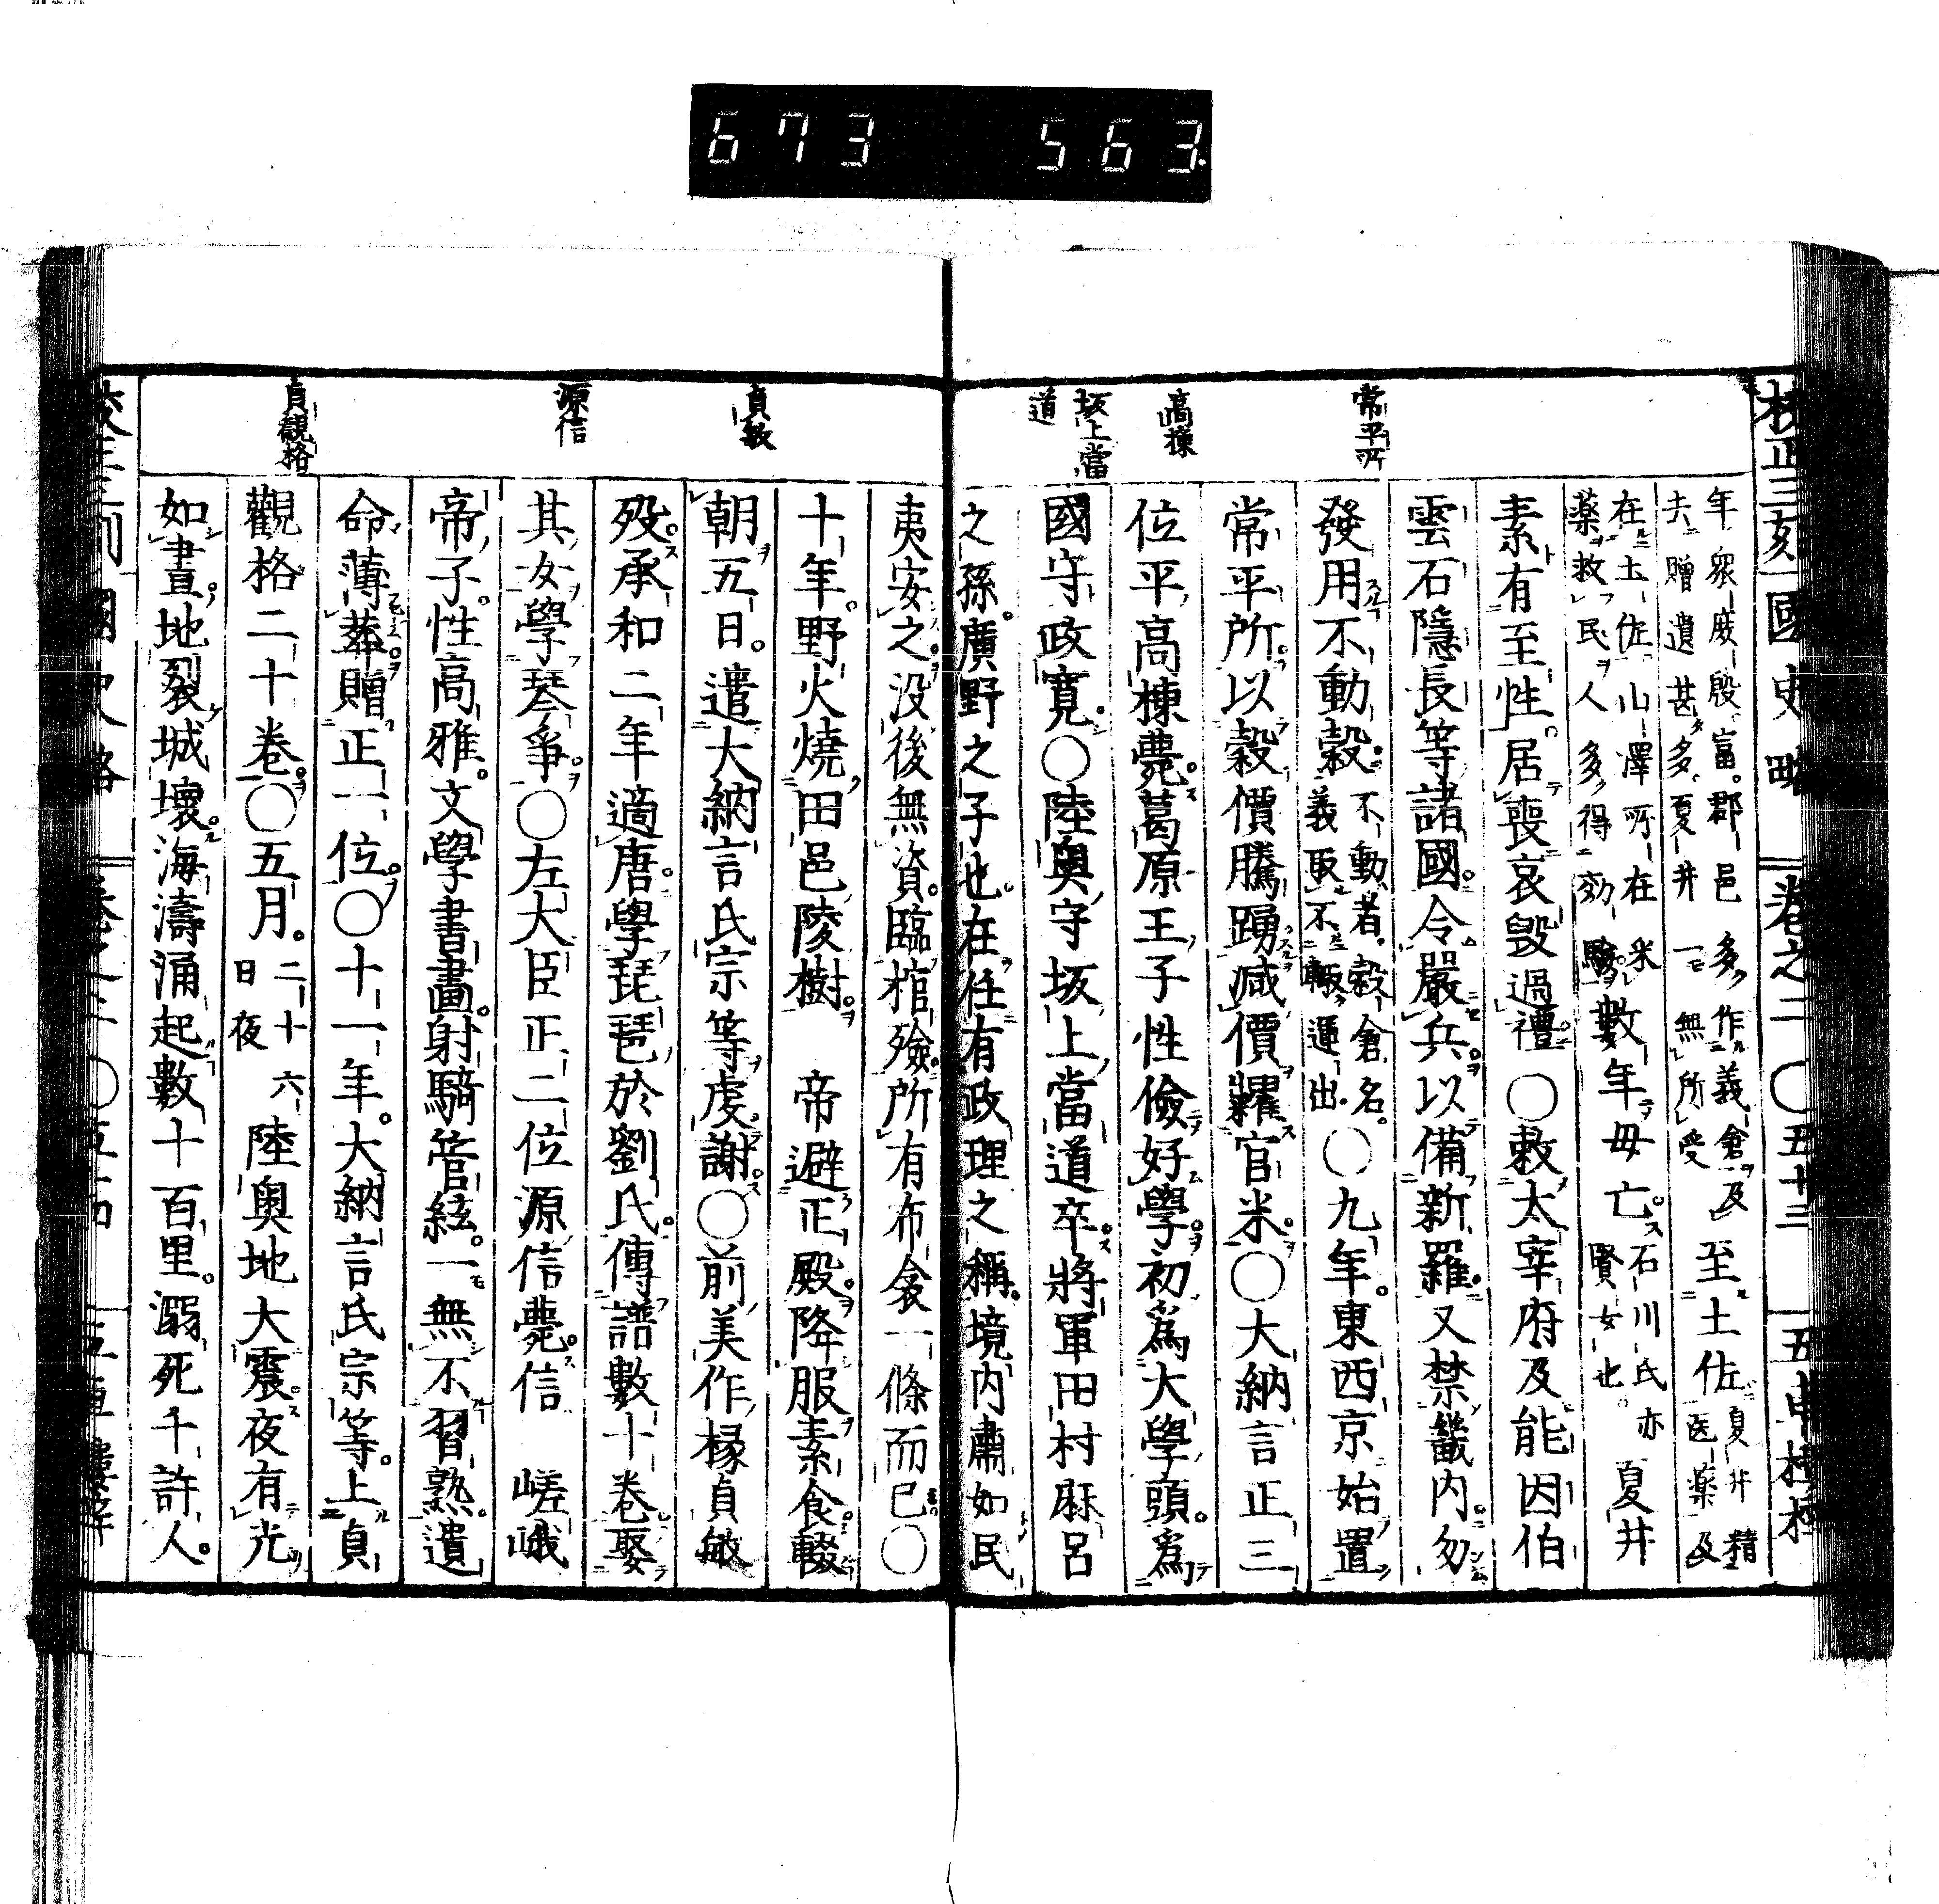 673 563
校正三刻國史略 卷之二 〇五十三 五車樓梓
常平所
高棟
坂上當道
年衆庶殷富郡邑多作義倉及至土佐夏井精
去贈遺甚多夏井一無所受医薬及
在土佐山澤所在采
薬救民人多得効驗數年母亡石川氏亦賢女也夏井
素有至性居喪哀毀過禮〇敕太宰府及能因伯
雲石隱長等諸國令嚴兵以備新羅又禁畿内勿
發用不動穀不動者穀倉名義取不輙運出〇九年東西京始置
常平所以穀價騰踴減價糶官米〇大納言正三
位平高棟薨葛原王子性儉好學初爲大學頭爲
國守政寛〇陸奥守坂上當道卒將軍田村麻呂
之孫廣野之子也在任有政理之稱境内肅如民
貞敏
源信
貞觀格
夷安之没後無資臨棺殮所有布衾一條而已〇
十年野火燒田邑陵樹 帝避正殿降服素食輟
朝五日遣大納言氏宗等虔謝〇前美作椽貞敏
歿承和二年適唐學琵琶於劉氏傳譜數十卷娶
其女學琴爭〇左大臣正二位源信薨信 嵯峨
帝子性高雅文學書畫射騎管絃一無不習熟遺
命薄葬贈正一位〇十一年大納言氏宗等上貞
觀格二十卷〇五月二十六日夜陸奥地大震夜有光
如晝地裂城壞海濤涌起數十百里溺死千許人